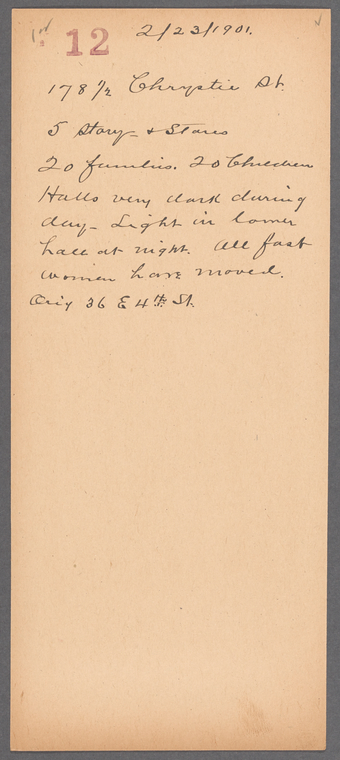 12 2/23/1901.
178 1/2 Chrystie St.
5 Story - & Stores
20 families. 20 Children
Halls very dark during
day - Light in lower
hall at night. All fast
women have moved.
36 E 4th St.